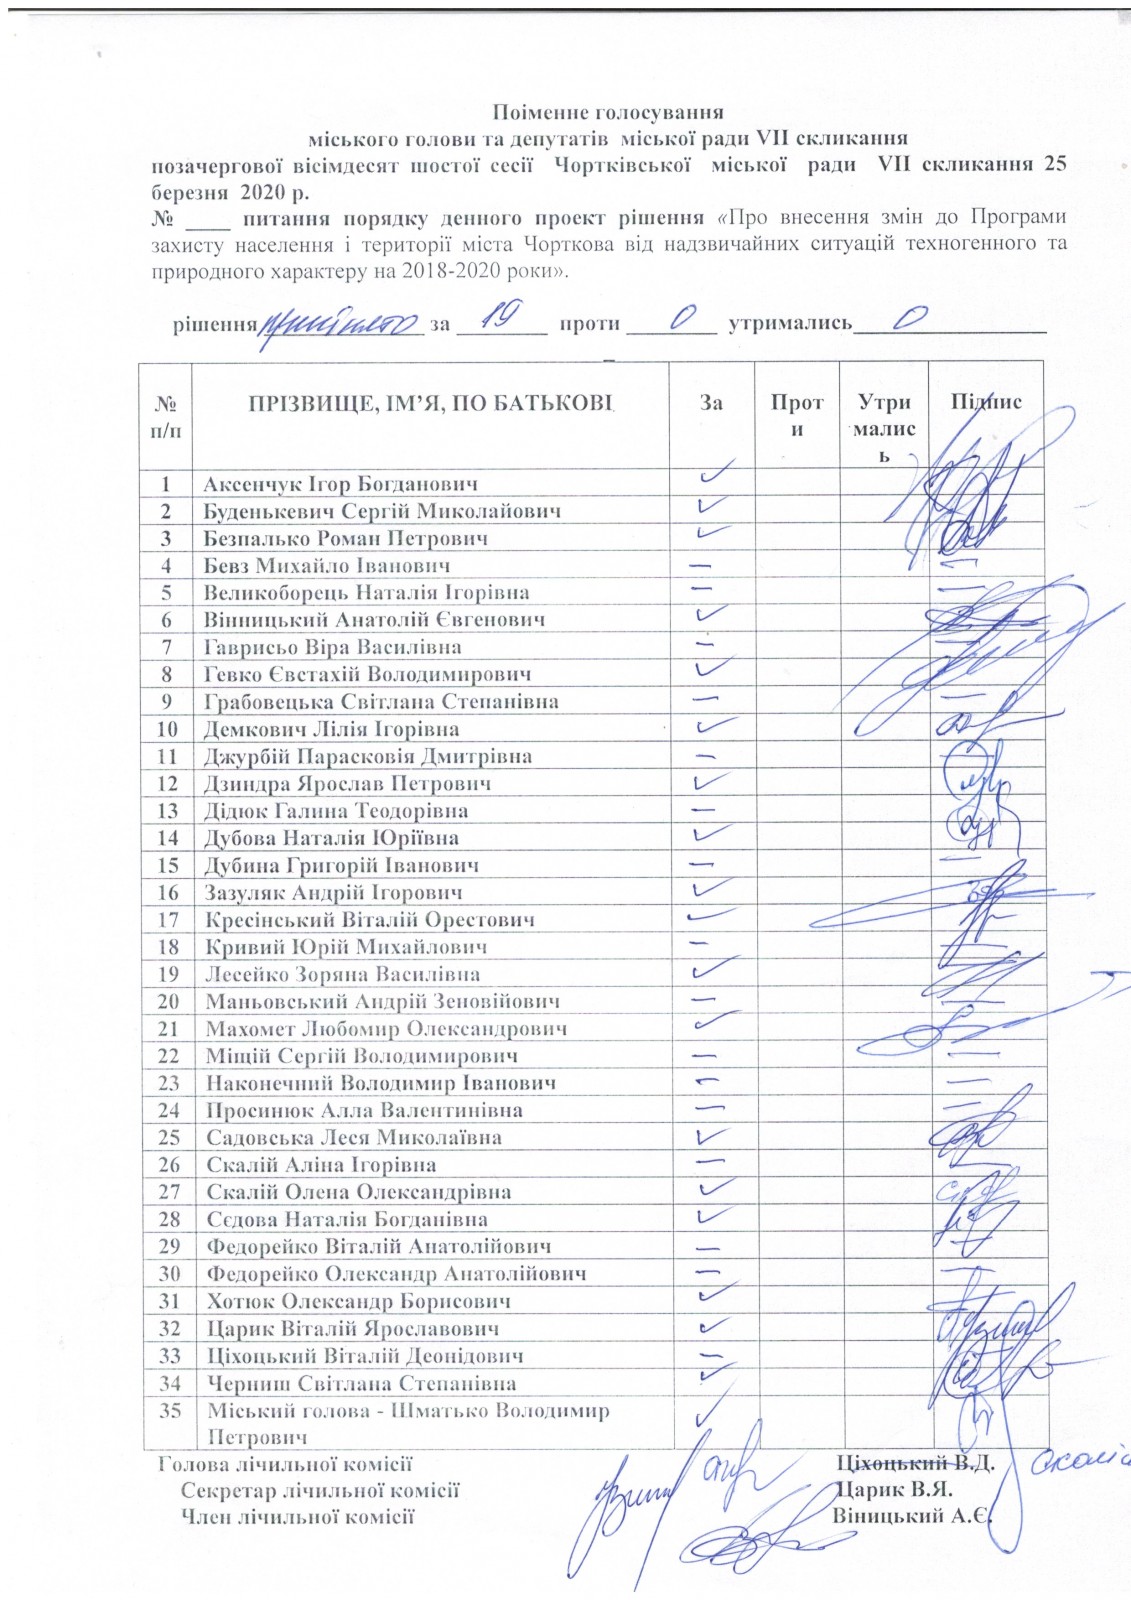 Поіменне голосування
міського голови та депутатів міської ради VII скликання
позачергової вісімдесят шостої сесії Чортківської міської ради VII скликання 25
березня 2020 р.
№ ____ питання порядку денного проект рішення «Про внесення змін до Програми
захисту населення і території міста Чорткова від надзвичайних ситуацій техногенного та
природного характеру на 2018-2020 роки».
рішення прийнято за 19 проти 0 утримались 0
№ п/п ПРІЗВИЩЕ, ІМ’Я, ПО БАТЬКОВІ За Проти Утрималась Підпис
1 Аксенчук Ігор Богданович ✓
2 Буденькевич Сергій Миколайович ✓
3 Безпалько Роман Петрович ✓
4 Бевз Михайло Іванович — —
5 Великоборець Наталія Ігорівна — —
6 Вінницький Анатолій Євгенович ✓
7 Гаврисьо Віра Василівна — —
8 Гевко Євстахій Володимирович ✓
9 Грабовецька Світлана Степанівна — —
10 Демкович Лілія Ігорівна ✓
11 Джурбій Парасковія Дмитрівна — —
12 Дзиндра Ярослав Петрович ✓
13 Дідюк Галина Теодорівна — —
14 Дубова Наталія Юріївна ✓
15 Дубина Григорій Іванович — —
16 Зазуляк Андрій Ігорович ✓
17 Кресінський Віталій Орестович ✓
18 Кривий Юрій Михайлович — —
19 Лесейко Зоряна Василівна ✓
20 Маньовський Андрій Зеновійович — —
21 Махомет Любомир Олександрович ✓
22 Міщій Сергій Володимирович — —
23 Наконечний Володимир Іванович — —
24 Просинюк Алла Валентинівна — —
25 Садовська Леся Миколаївна ✓
26 Скалій Аліна Ігорівна — —
27 Скалій Олена Олександрівна ✓
28 Сєдова Наталія Богданівна ✓
29 Федорейко Віталій Анатолійович — —
30 Федорейко Олександр Анатолійович — —
31 Хотюк Олександр Борисович ✓
32 Царик Віталій Ярославович ✓
33 Ціхоцький Віталій Деонідович — —
34 Черниш Світлана Степанівна ✓
35 Міський голова - Шматько Володимир
Петрович ✓
Голова лічильної комісії Ціхоцький В.Д.
Секретар лічильної комісії Царик В.Я.
Член лічильної комісії Віницький А.Є.